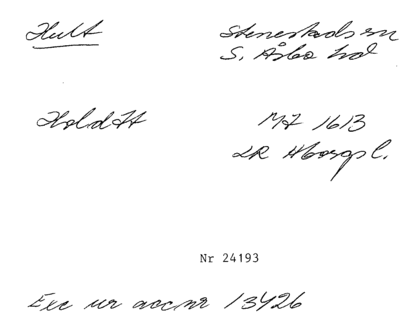 Hult
Stenestads sn
S. Åsbo hd
Holdtt
MJ 1613
LR Hborgs l.
Nr 24193
Exc ur acc nr 13426